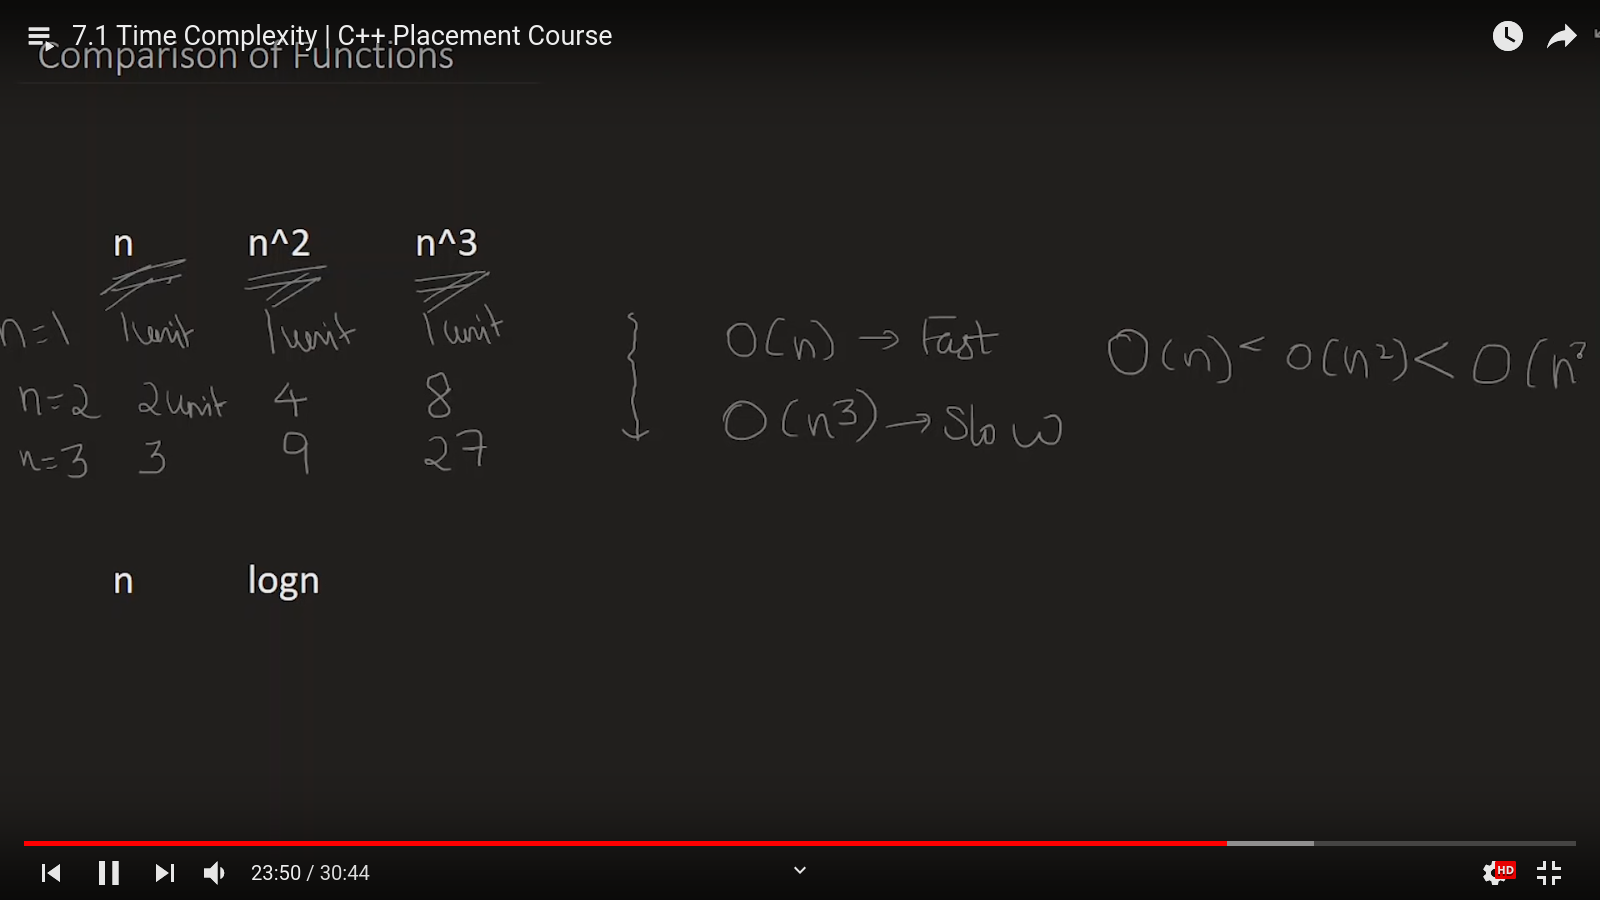 7.1 Time Complexity | C++ Placement Course
Comparison of Functions
n n^2 n^3
n=1 1unit 1unit 1unit
n=2 2unit 4 8
n=3 3 9 27
O(n) → Fast
O(n3) → Slow
O(n) < O(n2) < O(n3
n logn
23:50 / 30:44
HD